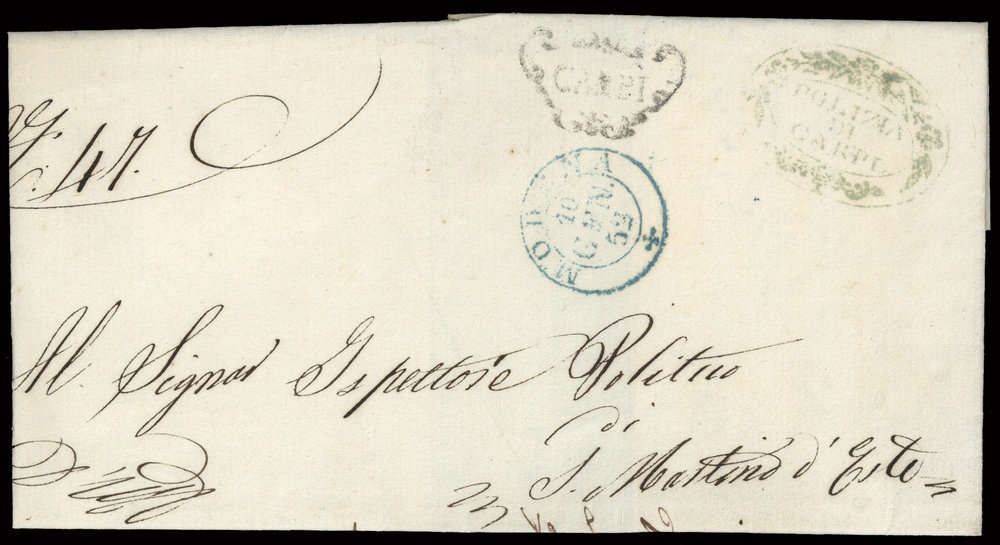 CARPI
POLIZIA
DI
CARPI
47.
MODENA
10
GEN.
52
Al Signor Ispettore Politico
di
S. Martino d'Este